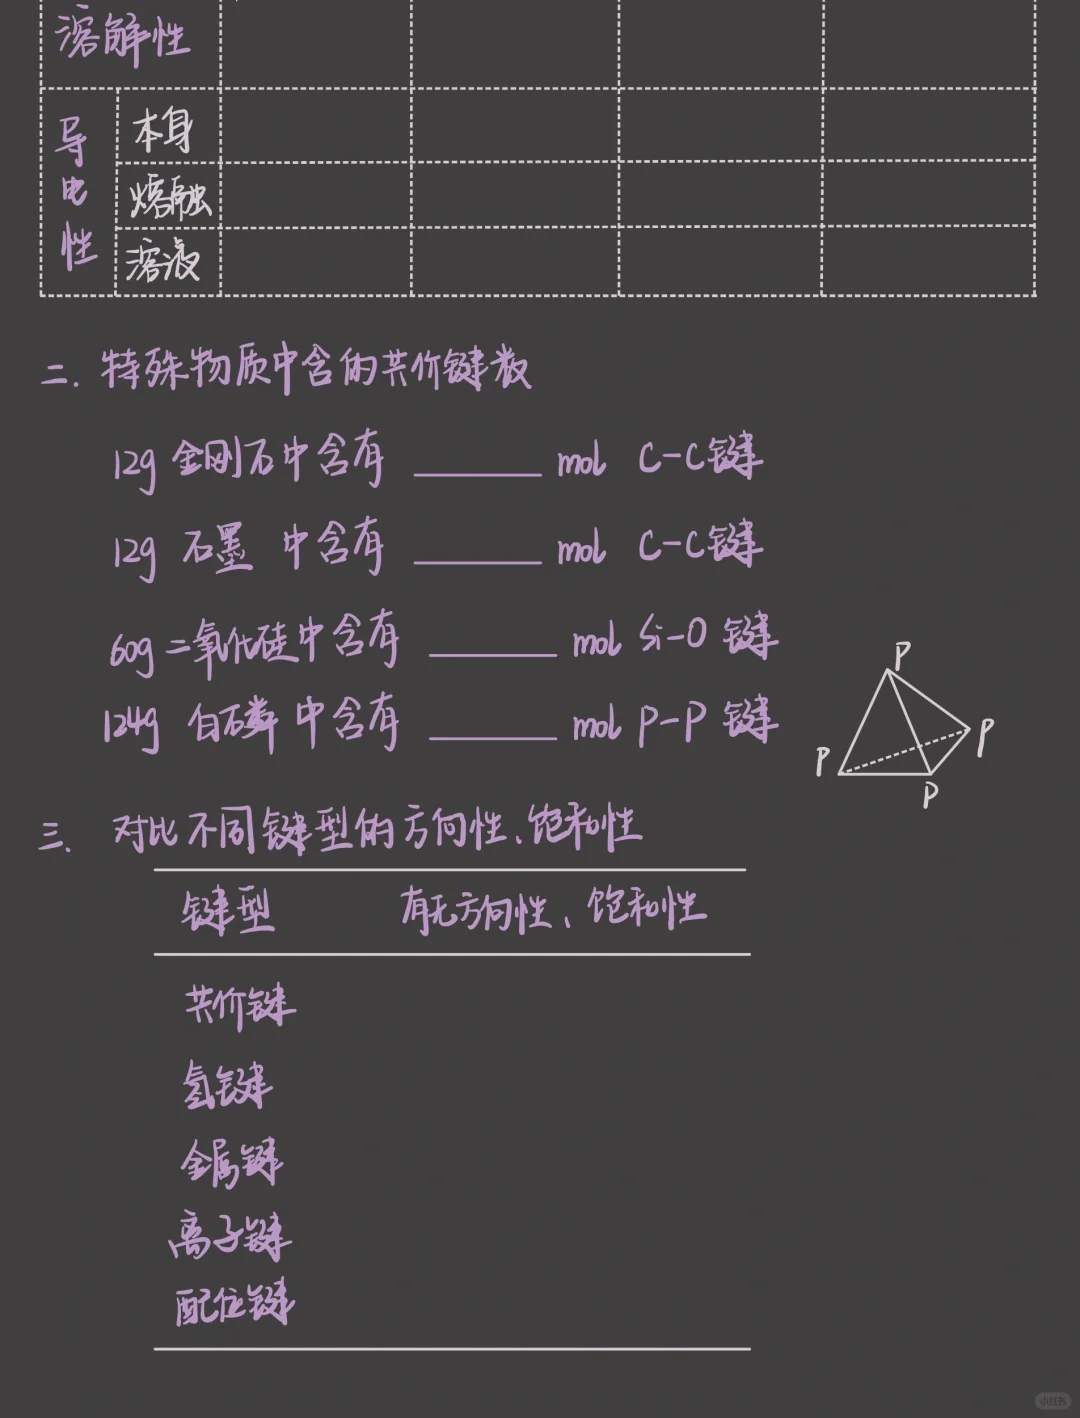 溶解性
导电性
本身
熔融
溶液
二. 特殊物质中含的共价键数
12g 金刚石中含有 ______ mol C-C键
12g 石墨 中含有 ______ mol C-C键
60g 二氧化硅中含有 ______ mol Si-O 键
124g 白磷 中含有 ______ mol P-P 键
P
P
P
P
三. 对比不同键型的方向性、饱和性
键型 有无方向性、饱和性
共价键
氢键
金属键
离子键
配位键
小红书